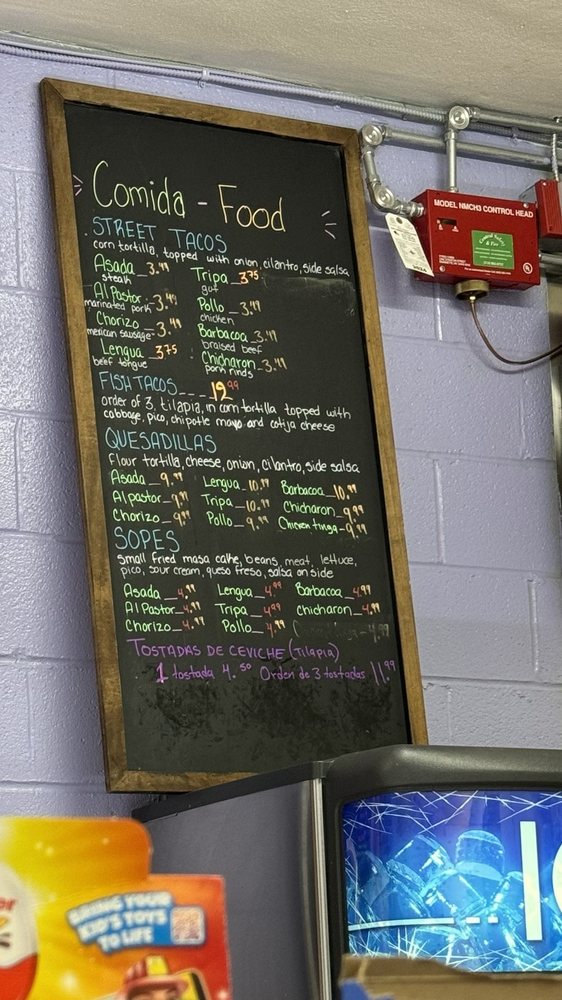 Comida - Food
STREET TACOS
corn tortilla, topped with onion, cilantro, side salsa
Asada _ 3.49
steak
Al Pastor - 3.49
marinated pork
Chorizo _ 3.49
mexican sausage
Lengua _ 3.75
beef tongue
Tripa _ 3.75
gut
Pollo _ 3.49
chicken
Barbacoa _ 3.49
braised beef
Chicharon _ 3.49
pork rinds
FISH TACOS _ _ _ _ 12.99
order of 3, tilapia, in corn tortilla topped with
cabbage, pico, chipotle mayo and cotija cheese
QUESADILLAS
Flour tortilla, cheese, onion, cilantro, side salsa
Asada _ 9.99 Lengua _ 10.99 Barbacoa _ 10.99
Al pastor _ 9.99 Tripa _ 10.99 Chicharon _ 9.99
Chorizo _ 9.99 Pollo _ 9.99 Chicken tinga _ 9.99
SOPES
small fried masa cake, beans, meat, lettuce,
pico, sour cream, queso freso, salsa on side
Asada _ 4.99 Lengua _ 4.99 Barbacoa _ 4.99
Al Pastor _ 4.99 Tripa _ 4.99 Chicharon _ 4.99
Chorizo _ 4.99 Pollo _ 4.99
TOSTADAS DE CEVICHE (Tilapia)
1 tostada 4.50 Orden de 3 tostadas 11.99
MODEL NMCH3 CONTROL HEAD
BRING YOUR
KID'S TOYS
TO LIFE